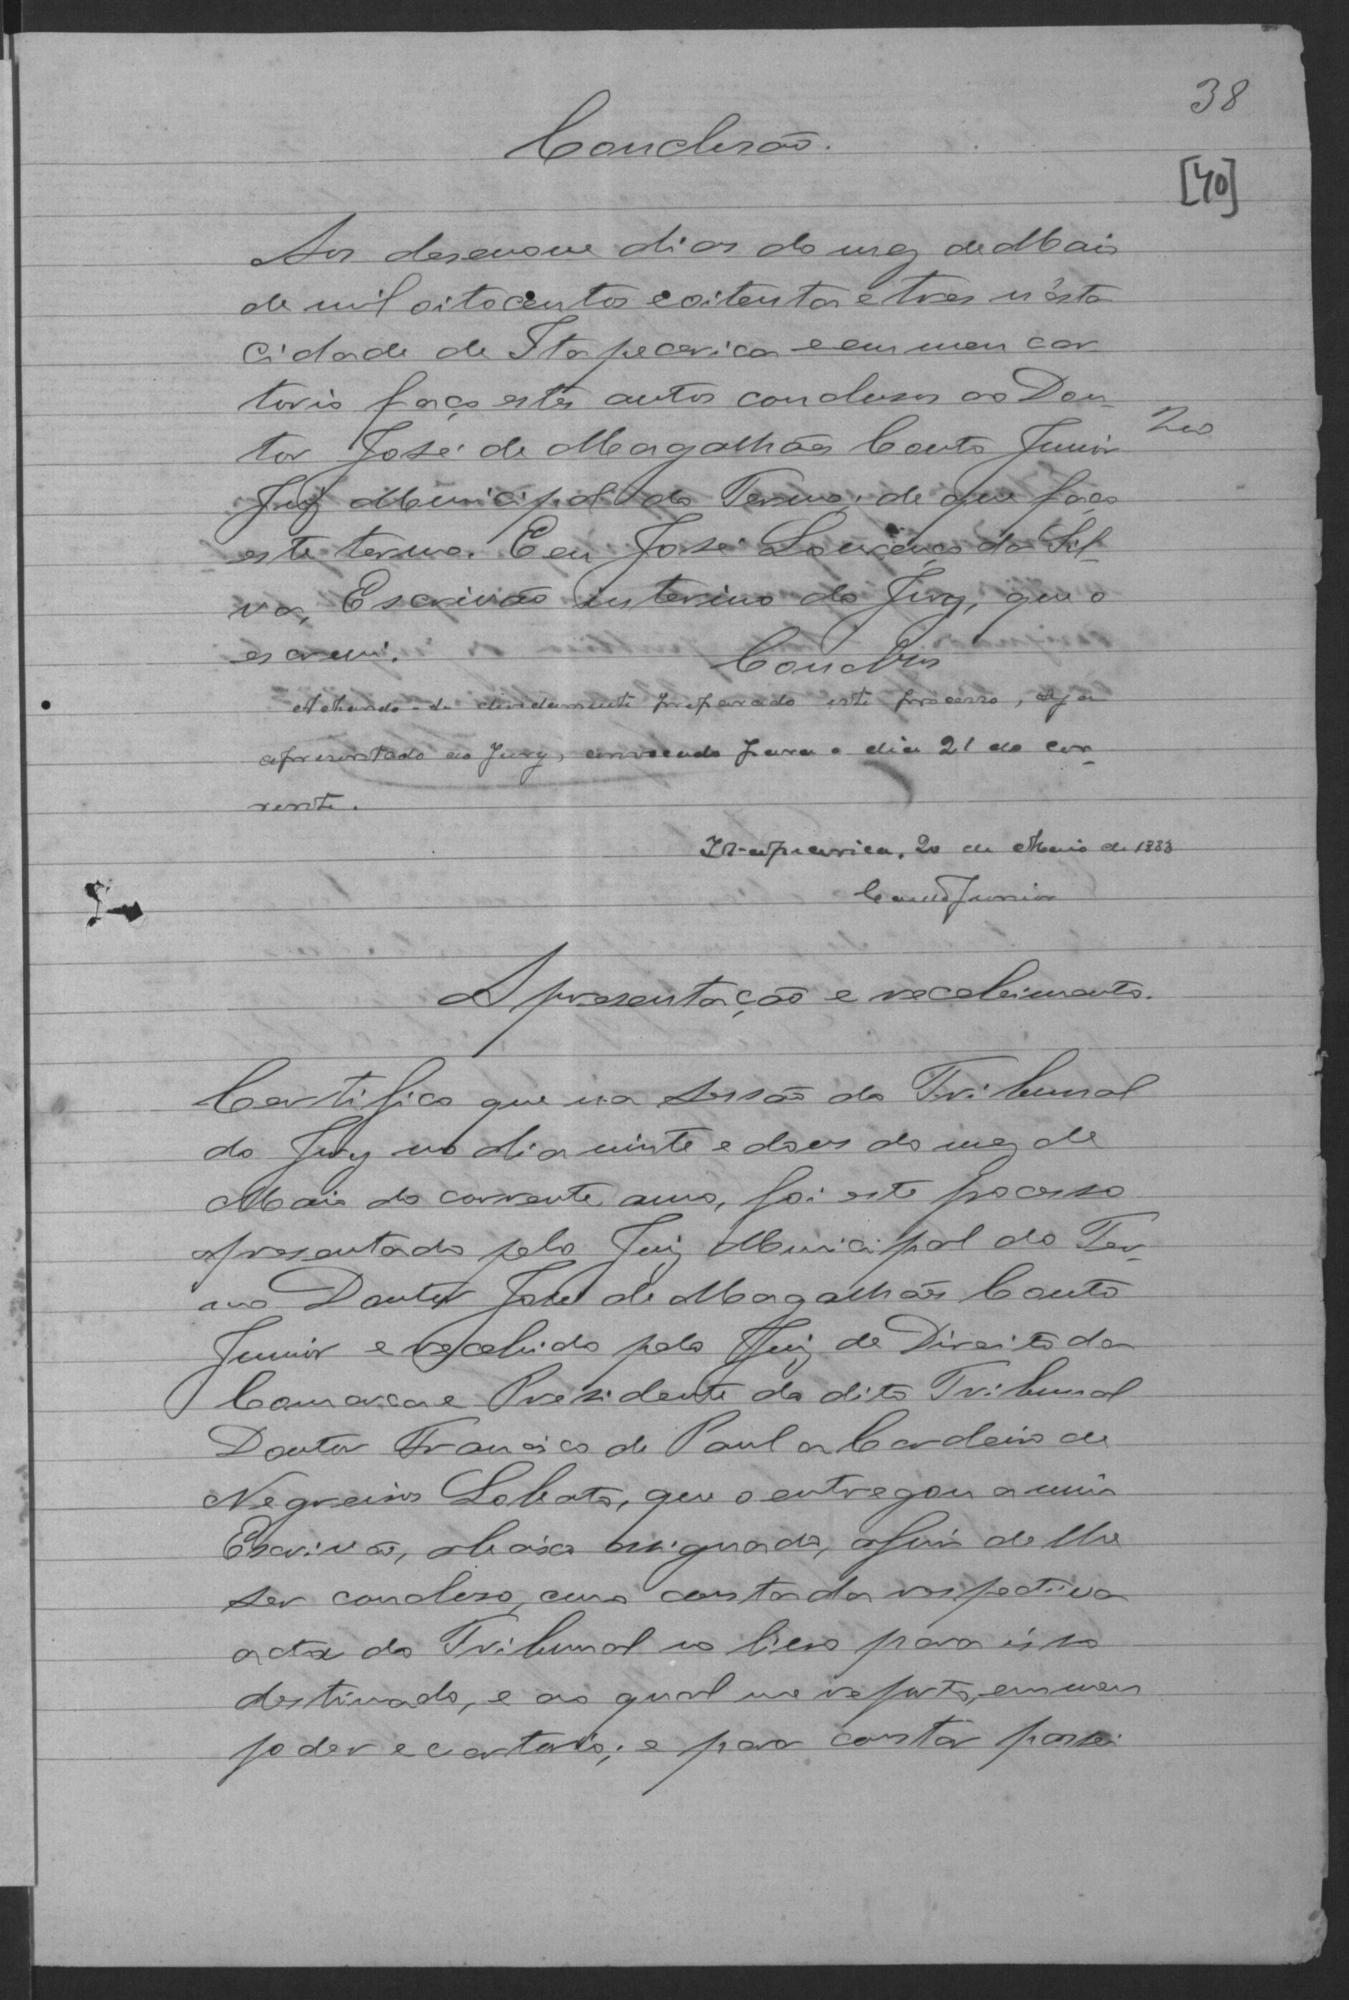 38
[40]
Conclusão.
Aos desenove dias do mez de Maio
de mil oitocentos e oitenta e tres n'esta
cidade de Itapecerica e em meu car
torio faço estes autos conclusos ao Dou-
tor José de Magalhães Couto Junior
Juiz Municipal do Termo; de que faço
este termo. E eu José Lourenço da Sil-
va, Escrivão interino do Jury, que o
escrevi.
Conclusos
Achando-se devidamente preparado este processo, seja
apresentado ao Jury, convocado para o dia 21 do cor-
rente.
Itapecerica, 20 de Maio de 1883
Couto Junior
Apresentação e recebimento.
Certifico que na sessão do Tribunal
do Jury no dia vinte e dous do mez de
Maio do corrente anno, foi este processo
apresentado pelo Juiz Municipal do Ter-
mo Doutor José de Magalhães Couto
Junior e recebido pelo Juiz de Direito da
Comarca e Presidente do dito Tribunal
Doutor Francisco de Paula Cordeiro de
Negreiros Lobato, que o entregou a mim
Escrivão, abaixo assignado, afim de lhe
ser concluso, como consta da respectiva
acta do Tribunal no livro para isso
destinado, e ao qual me reporto, em meu
poder e cartorio; e para constar passei